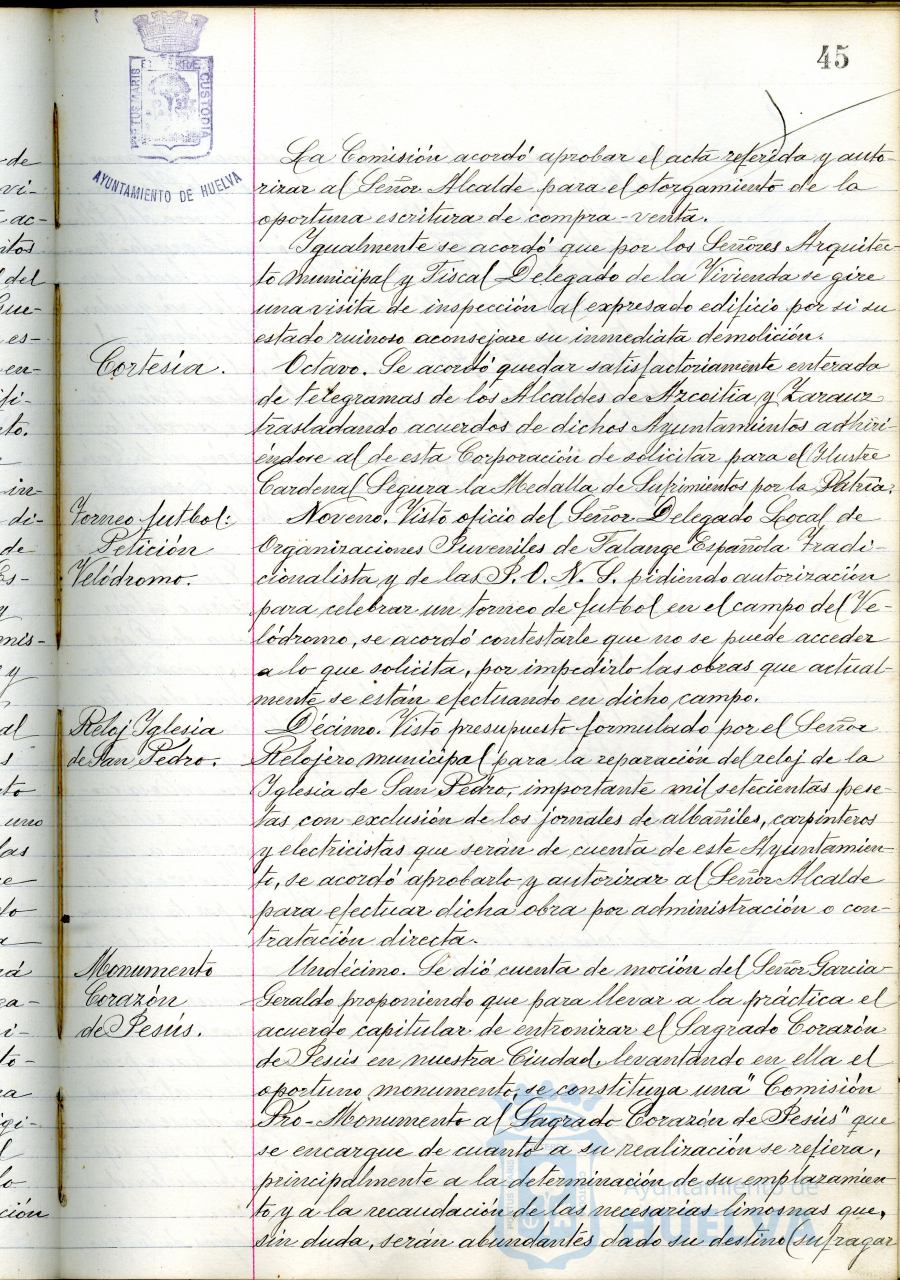 45
PORTUS MARIS ET TERRE CUSTODIA
AYUNTAMIENTO DE HUELVA
La Comisión acordó aprobar el acta referida y auto-
rizar al Señor Alcalde para el otorgamiento de la
oportuna escritura de compra-venta.
Igualmente se acordó que por los Señores Arquitec-
to municipal y Fiscal Delegado de la Vivienda se gire
una visita de inspección al expresado edificio por si su
estado ruinoso aconsejare su inmediata demolición.
Cortesía.
Octavo. Se acordó quedar satisfactoriamente enterada
de telegramas de los Alcaldes de Azcoitia y Zarauz
trasladando acuerdos de dichos Ayuntamientos adhiri-
éndose al de esta Corporación de solicitar para el Ilustre
Cardenal Segura la Medalla de Sufrimientos por la Patria.
Torneo futbol:
Petición
Velódromo.
Noveno. Visto oficio del Señor Delegado Local de
Organizaciones Juveniles de Falange Española Tradi-
cionalista y de las J.O.N.S. pidiendo autorización
para celebrar un torneo de futbol en el campo del Ve-
lódromo, se acordó contestarle que no se puede acceder
a lo que solicita, por impedirlo las obras que actual-
mente se están efectuando en dicho campo.
Reloj Iglesia
de San Pedro.
Décimo. Visto presupuesto formulado por el Señor
Relojero municipal para la reparación del reloj de la
Iglesia de San Pedro, importante mil setecientas pese-
tas con exclusión de los jornales de albañiles, carpinteros
y electricistas que serán de cuenta de este Ayuntamien-
to, se acordó aprobarlo y autorizar al Señor Alcalde
para efectuar dicha obra por administración o con-
tratación directa.
Monumento
Corazón
de Jesús.
Undécimo. Se dió cuenta de moción del Señor Garcia
Geraldo proponiendo que para llevar a la práctica el
acuerdo capitular de entronizar el Sagrado Corazón
de Jesús en nuestra Ciudad, levantando en ella el
oportuno monumento, se constituya una "Comisión
Pro-Monumento al Sagrado Corazón de Jesús" que
se encargue de cuanto a su realización se refiera,
principalmente a la determinación de su emplazamien-
to y a la recaudación de las necesarias limosnas que,
sin duda, serán abundantes dado su destino (sufragar
Ayuntamiento de
HUELVA